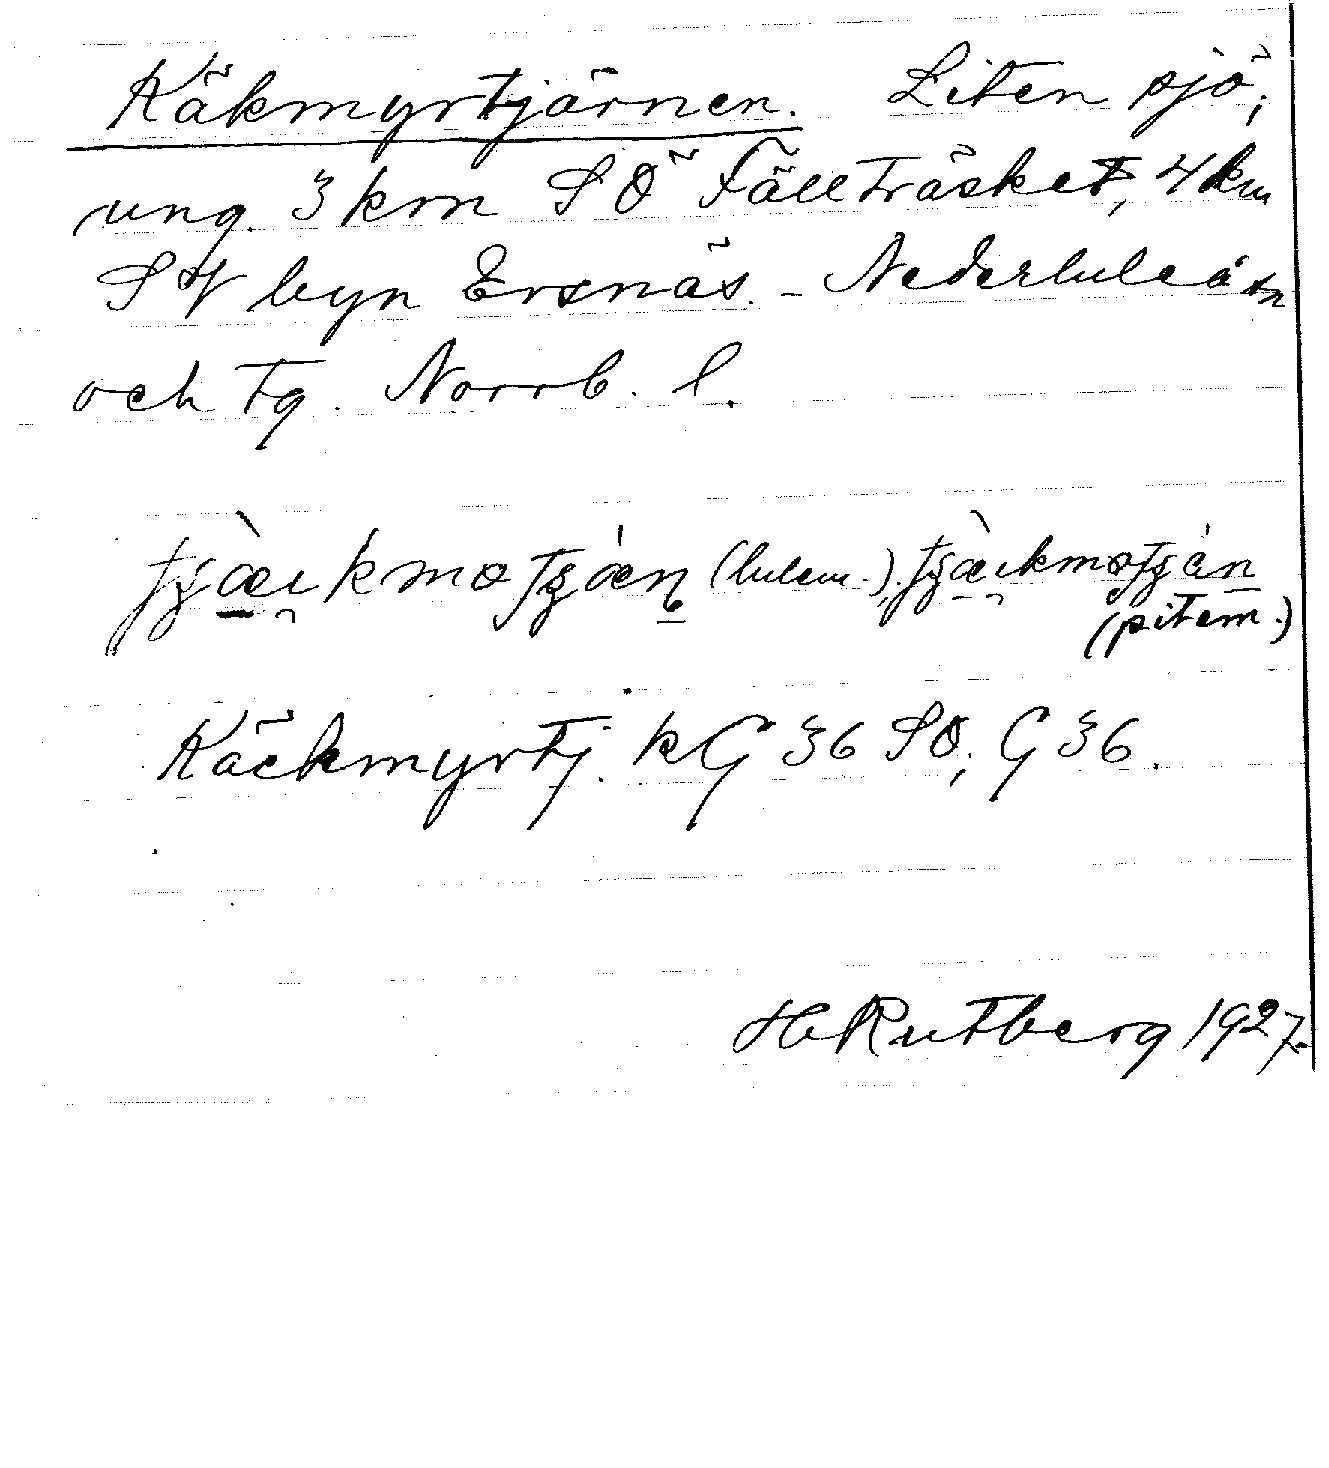 Käkmyrtjärnen. Liten sjö,
ung. 3 km SÖ Fällträsket, 4 km
SV byn Ersnäs. - Nederluleå sn
och tg. Norrb. l.
(lulem.),
(pitem.)
Käckmyrtj. kG 36 SO, G 36.
H Rutberg 1927.